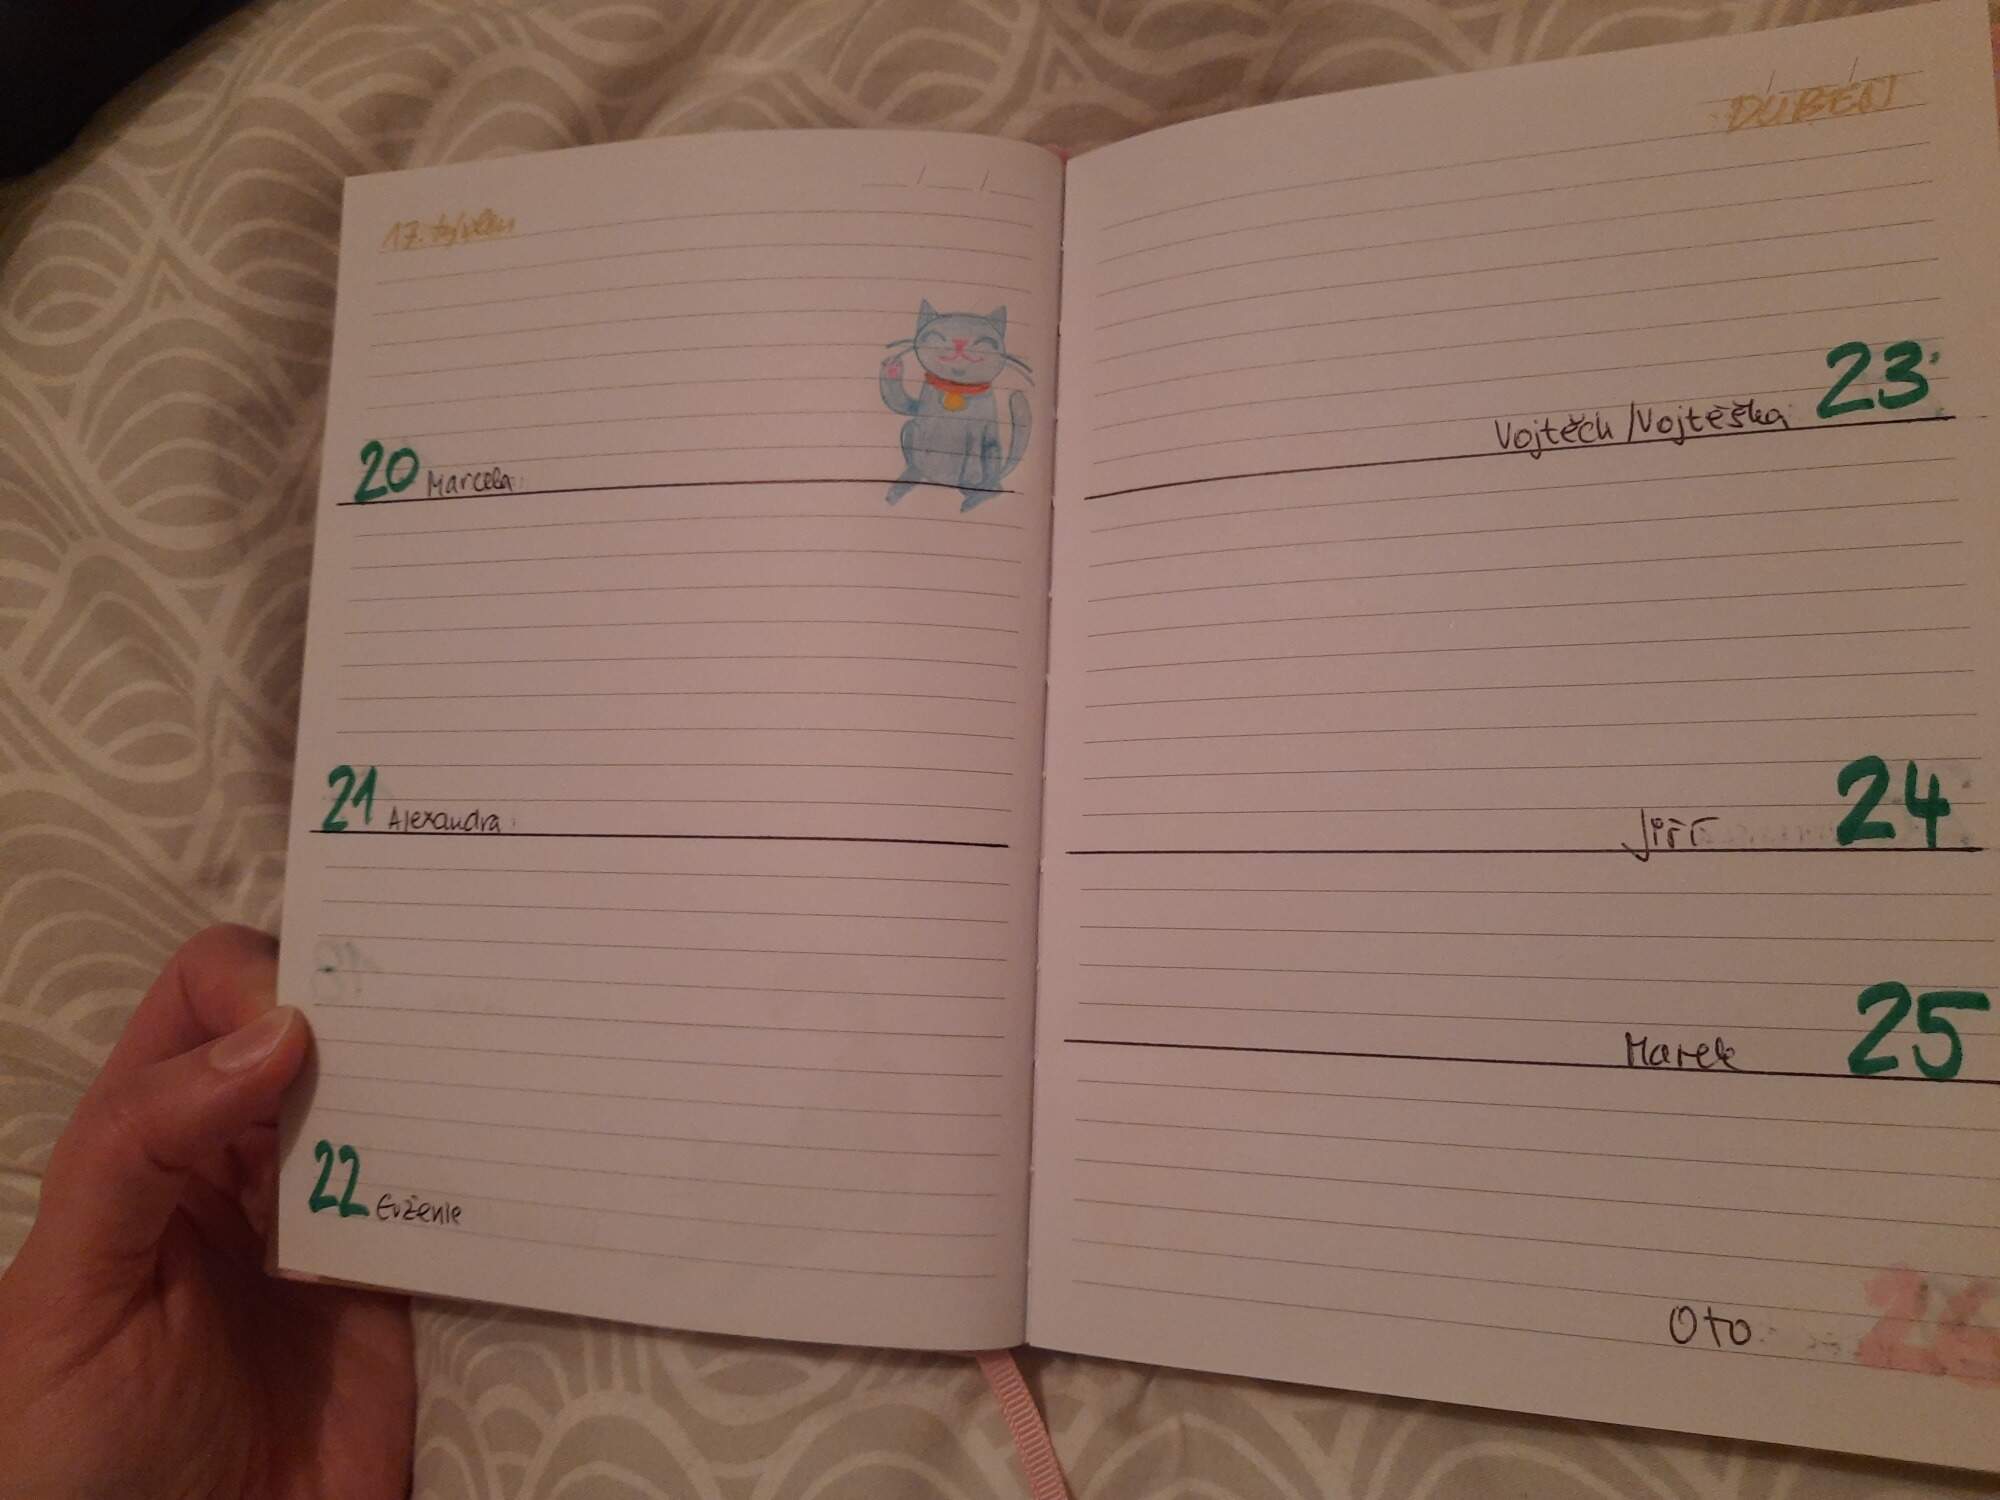 17. týden
20 Marcela
21 Alexandra
22 Evženie
DUBEN
Vojtěch/Vojtěška 23
Jiří 24
Marek 25
Oto 26